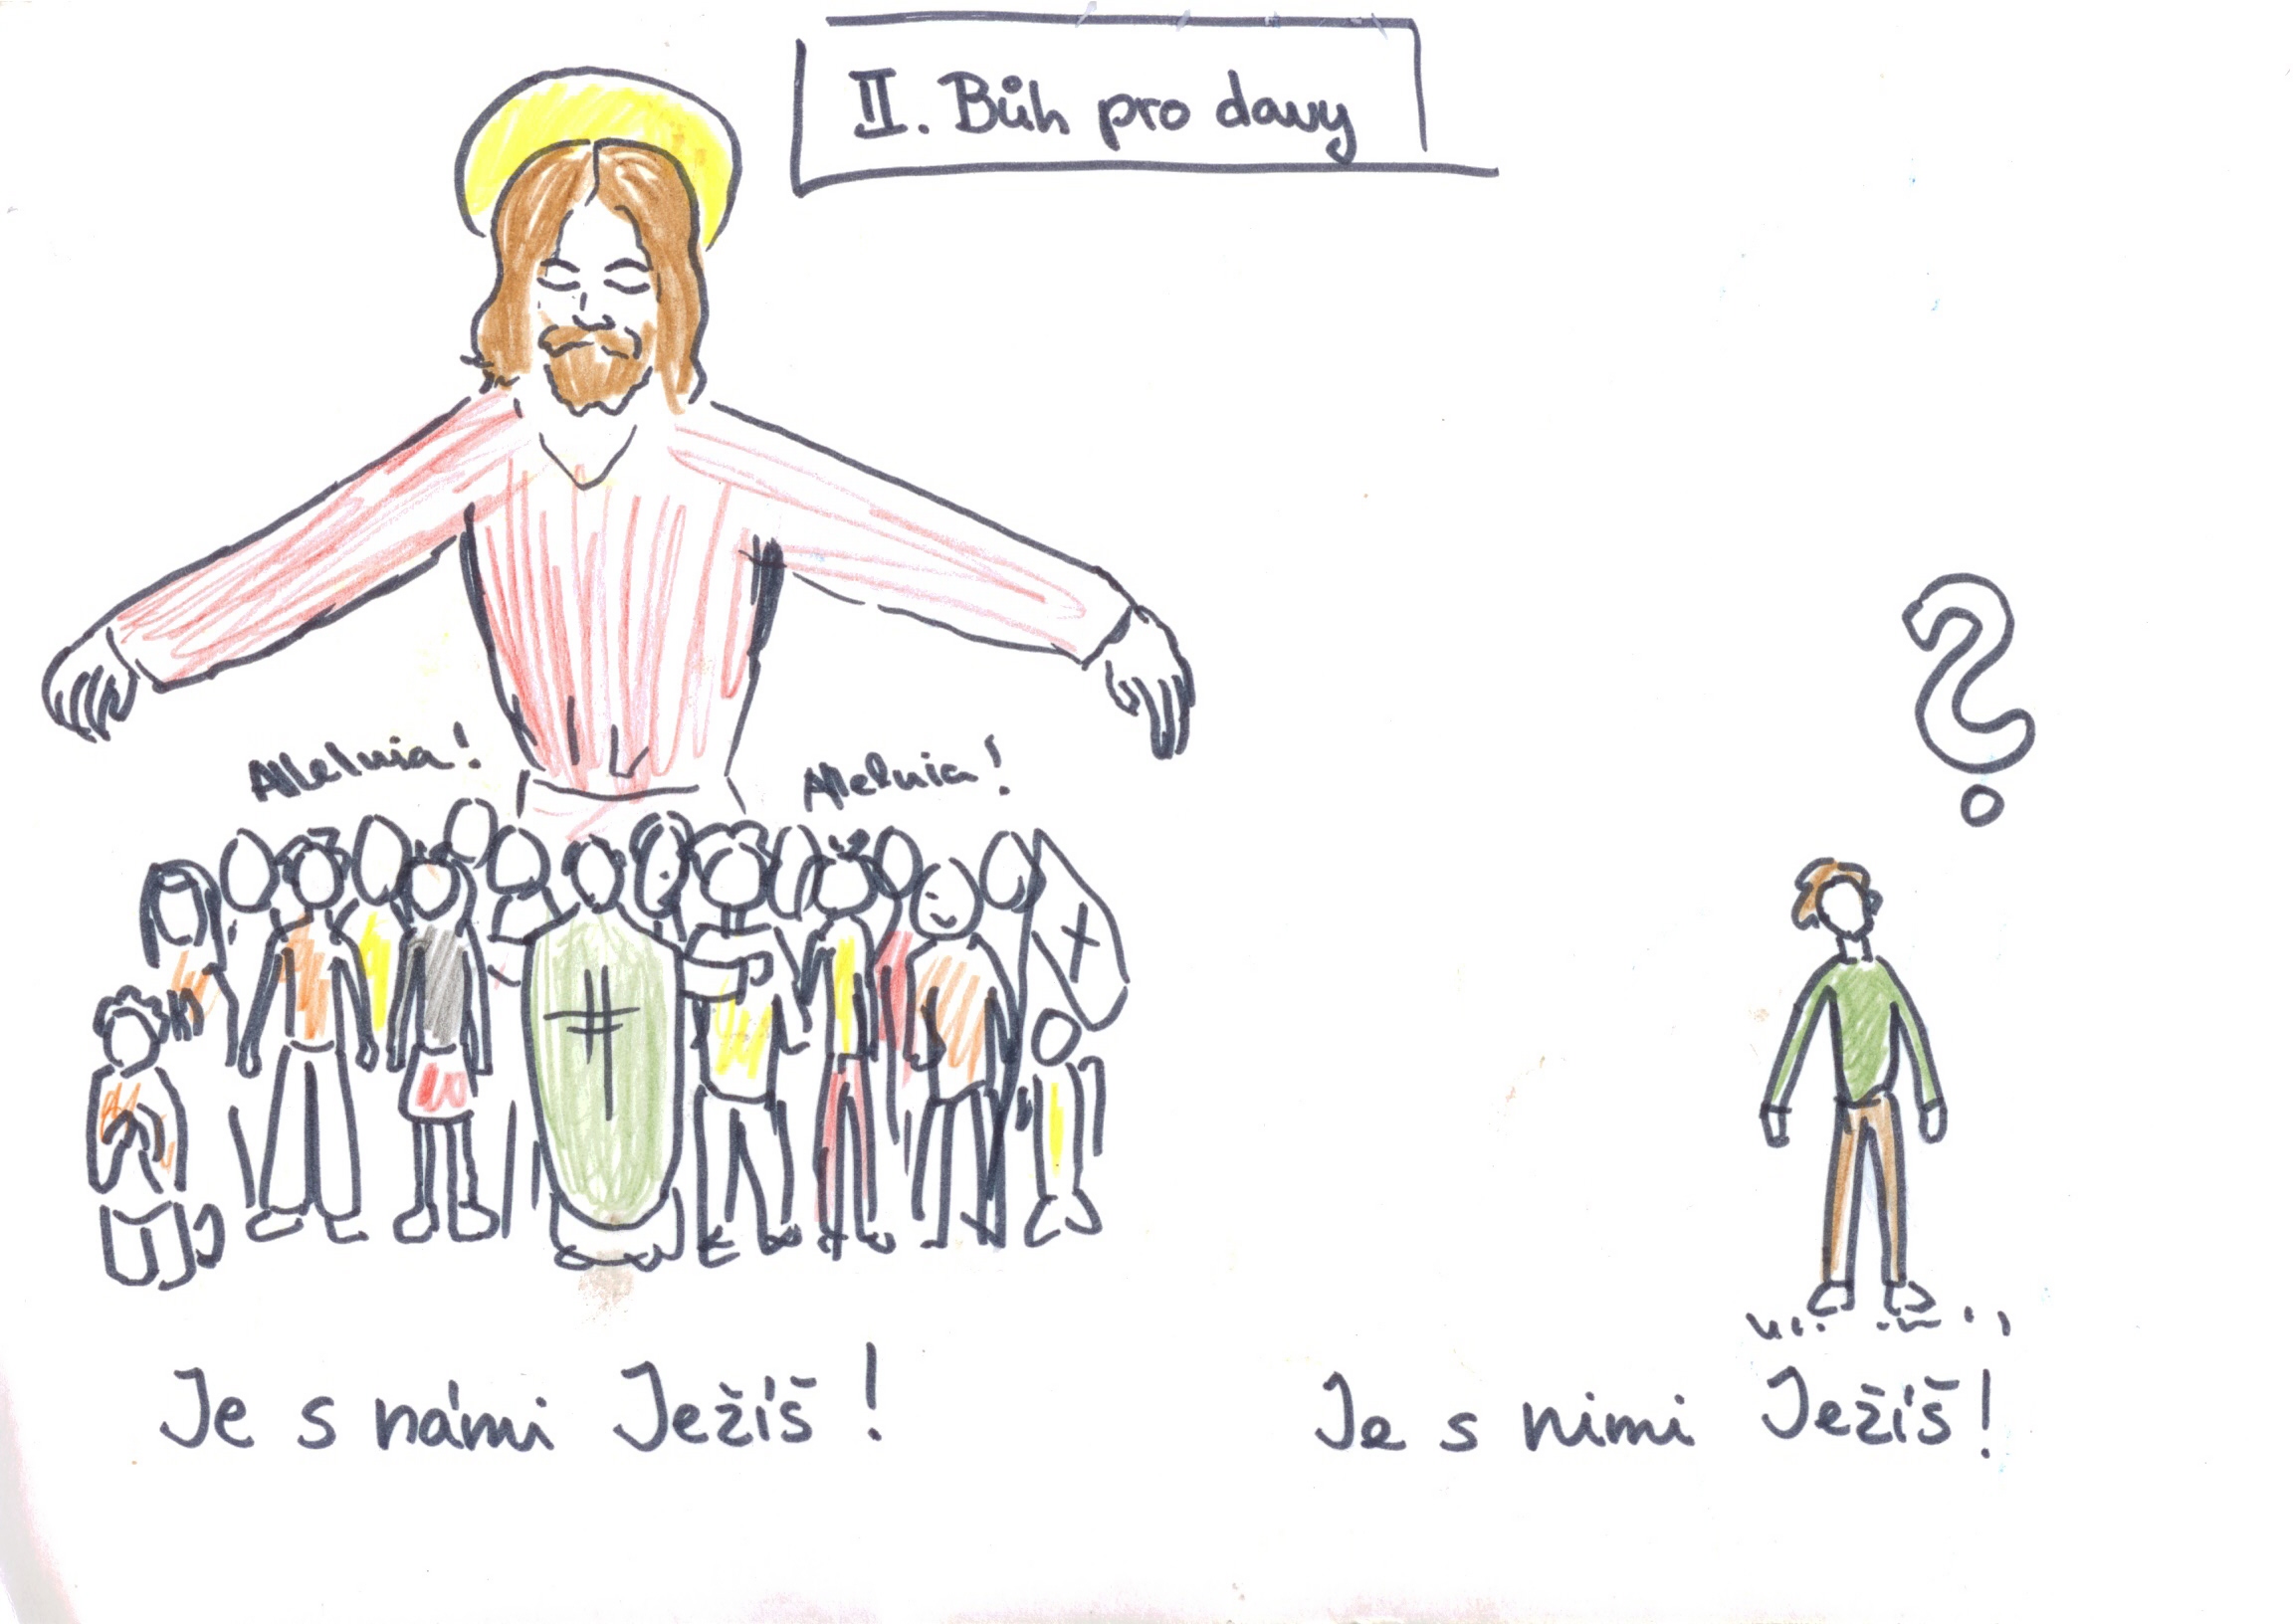 II. Bůh pro davy
Alleluia!
Alleluia!
Je s námi Ježíš!
Je s nimi Ježíš!